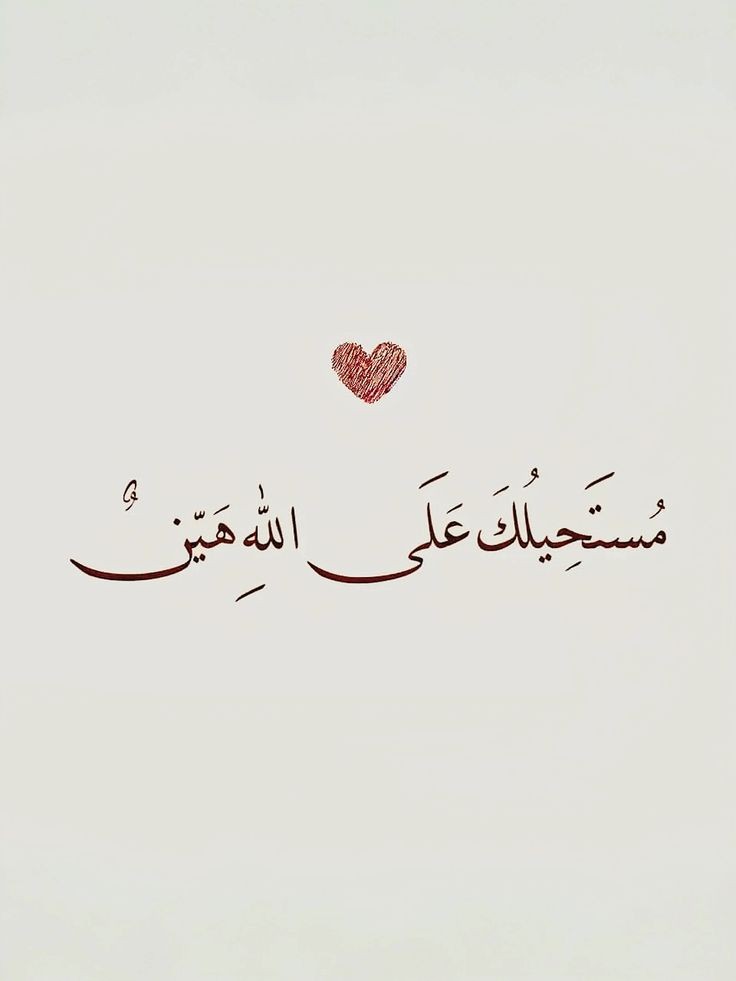 مُستَحِيلُكَ عَلَى اللّٰهِ هَيّنٌ